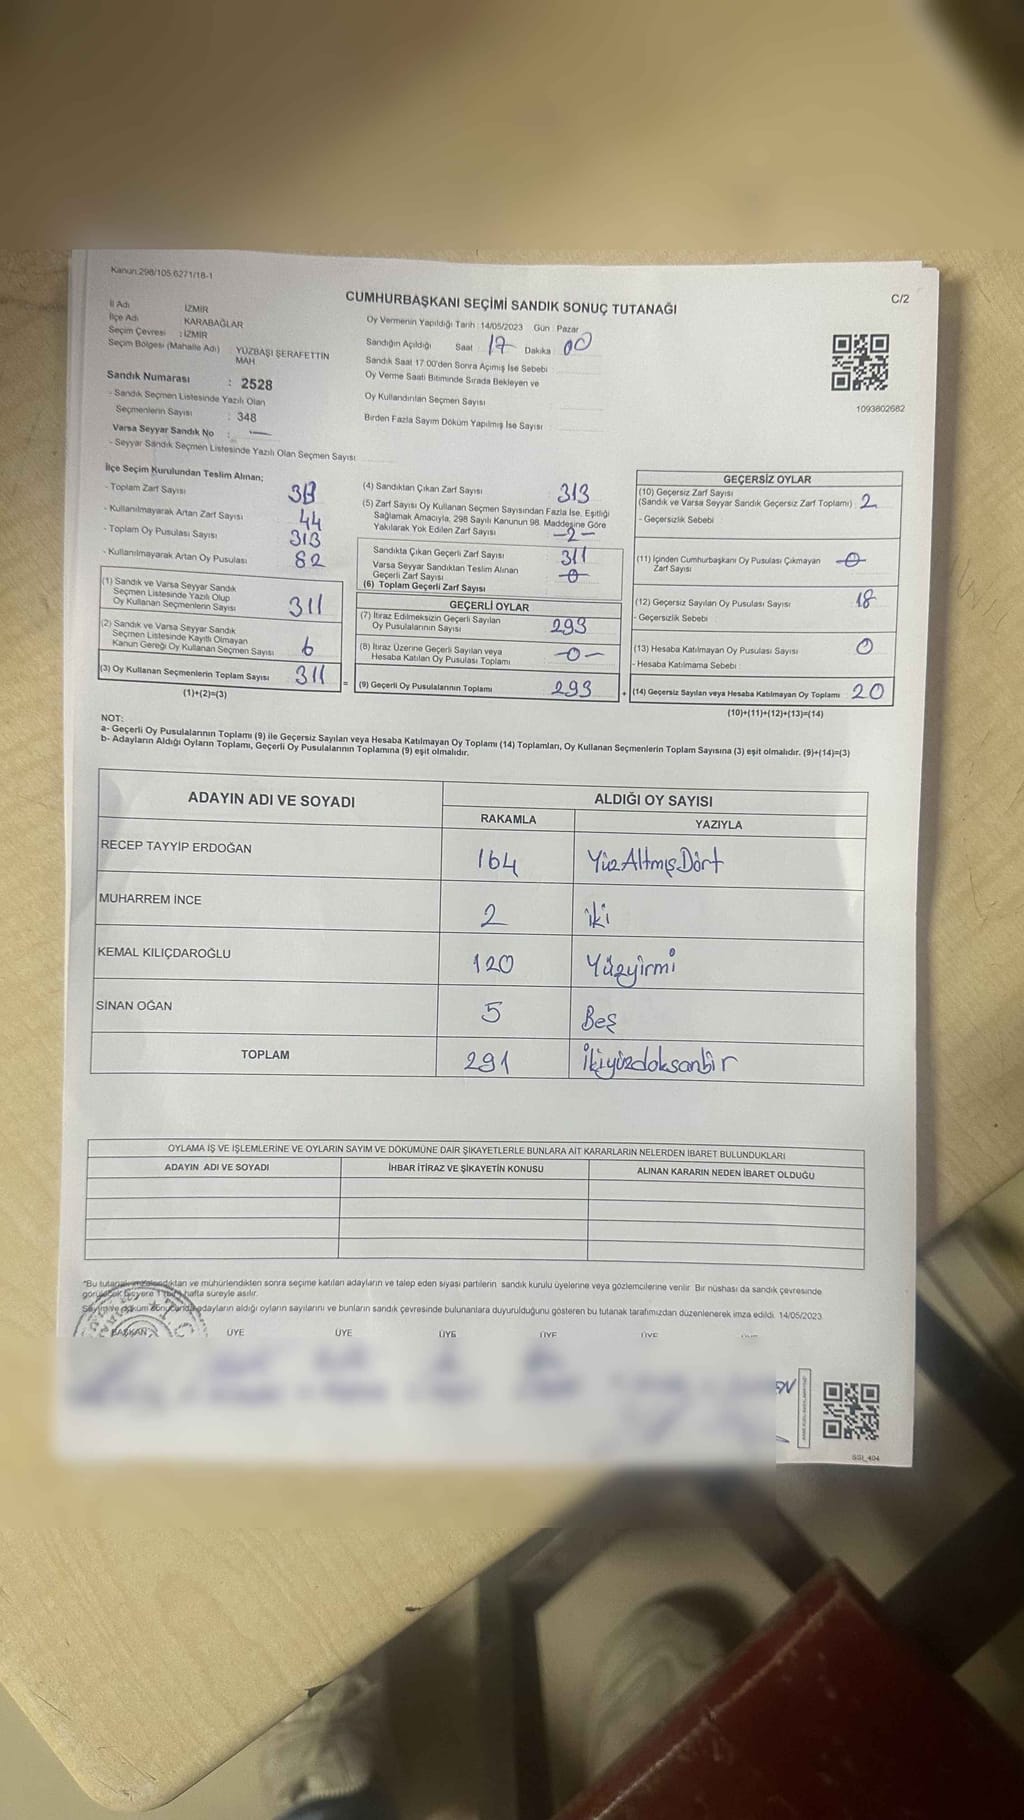 Kanun:298/105,6271/18-1
CUMHURBAŞKANI SEÇİMİ SANDIK SONUÇ TUTANAĞI
C/2
İl Adı İZMİR
İlçe Adı KARABAĞLAR
Seçim Çevresi : İZMİR
Seçim Bölgesi (Mahalle Adı) : YÜZBAŞI ŞERAFETTİN MAH
Sandık Numarası : 2528
- Sandık Seçmen Listesinde Yazılı Olan
Seçmenlerin Sayısı : 348
Varsa Seyyar Sandık No : —
- Seyyar Sandık Seçmen Listesinde Yazılı Olan Seçmen Sayısı
Oy Vermenin Yapıldığı Tarih : 14/05/2023 Gün : Pazar
Sandığın Açıldığı Saat 17 Dakika : 00
Sandık Saat 17:00'den Sonra Açımış İse Sebebi
Oy Verme Saati Bitiminde Sırada Bekleyen ve
Oy Kullandırılan Seçmen Sayısı
Birden Fazla Sayım Döküm Yapılmış İse Sayısı
1093802682
İlçe Seçim Kurulundan Teslim Alınan;
- Toplam Zarf Sayısı
- Kullanılmayarak Artan Zarf Sayısı 44
- Toplam Oy Pusulası Sayısı 313
- Kullanılmayarak Artan Oy Pusulası 82
(1) Sandık ve Varsa Seyyar Sandık
Seçmen Listesinde Yazılı Olup
Oy Kullanan Seçmenlerin Sayısı 311
(2) Sandık ve Varsa Seyyar Sandık
Seçmen Listesinde Kayıtlı Olmayan
Kanun Gereği Oy Kullanan Seçmen Sayısı 6
(3) Oy Kullanan Seçmenlerin Toplam Sayısı 311
(1)+(2)=(3)
(4) Sandıktan Çıkan Zarf Sayısı 313
(5) Zarf Sayısı Oy Kullanan Seçmen Sayısından Fazla İse, Eşitliği
Sağlamak Amacıyla, 298 Sayılı Kanunun 98. Maddesine Göre
Yakılarak Yok Edilen Zarf Sayısı -2-
Sandıkta Çıkan Geçerli Zarf Sayısı 311
Varsa Seyyar Sandıktan Teslim Alınan
Geçerli Zarf Sayısı 0
(6) Toplam Geçerli Zarf Sayısı
GEÇERLİ OYLAR
(7) İtiraz Edilmeksizin Geçerli Sayılan
Oy Pusulalarının Sayısı 293
(8) İtiraz Üzerine Geçerli Sayılan veya
Hesaba Katılan Oy Pusulası Toplamı -0-
= (9) Geçerli Oy Pusulalarının Toplamı 293
GEÇERSİZ OYLAR
(10) Geçersiz Zarf Sayısı
(Sandık ve Varsa Seyyar Sandık Geçersiz Zarf Toplamı) 2
- Geçersizlik Sebebi
(11) İçinden Cumhurbaşkanı Oy Pusulası Çıkmayan
Zarf Sayısı 0
(12) Geçersiz Sayılan Oy Pusulası Sayısı 18
- Geçersizlik Sebebi
(13) Hesaba Katılmayan Oy Pusulası Sayısı 0
- Hesaba Katılmama Sebebi
+ (14) Geçersiz Sayılan veya Hesaba Katılmayan Oy Toplamı 20
(10)+(11)+(12)+(13)=(14)
NOT:
a- Geçerli Oy Pusulalarının Toplamı (9) ile Geçersiz Sayılan veya Hesaba Katılmayan Oy Toplamı (14) Toplamları, Oy Kullanan Seçmenlerin Toplam Sayısına (3) eşit olmalıdır. (9)+(14)=(3)
b- Adayların Aldığı Oyların Toplamı, Geçerli Oy Pusulalarının Toplamına (9) eşit olmalıdır.
ADAYIN ADI VE SOYADI ALDIĞI OY SAYISI
RAKAMLA YAZIYLA
RECEP TAYYİP ERDOĞAN 164 Yüz Altmış Dört
MUHARREM İNCE 2 iki
KEMAL KILIÇDAROĞLU 120 Yüzyirmi
SİNAN OĞAN 5 Beş
TOPLAM 291 İkiyüzdoksanbir
OYLAMA İŞ VE İŞLEMLERİNE VE OYLARIN SAYIM VE DÖKÜMÜNE DAİR ŞİKAYETLERLE BUNLARA AİT KARARLARIN NELERDEN İBARET BULUNDUKLARI
ADAYIN ADI VE SOYADI İHBAR İTİRAZ VE ŞİKAYETİN KONUSU ALINAN KARARIN NEDEN İBARET OLDUĞU
*Bu tutanak imzalandıktan ve mühürlendikten sonra seçime katılan adayların ve talep eden siyasi partilerin sandık kurulu üyelerine veya gözlemcilerine verilir. Bir nüshası da sandık çevresinde
görülecek bir yere 1 (bir) hafta süreyle asılır.
Sayım ve döküm sonucunda adayların aldığı oyların sayılarını ve bunların sandık çevresinde bulunanlara duyurulduğunu gösteren bu tutanak tarafımızdan düzenlenerek imza edildi. 14/05/2023
BAŞKAN ÜYE ÜYE ÜYE ÜYE ÜYE
SSI_404